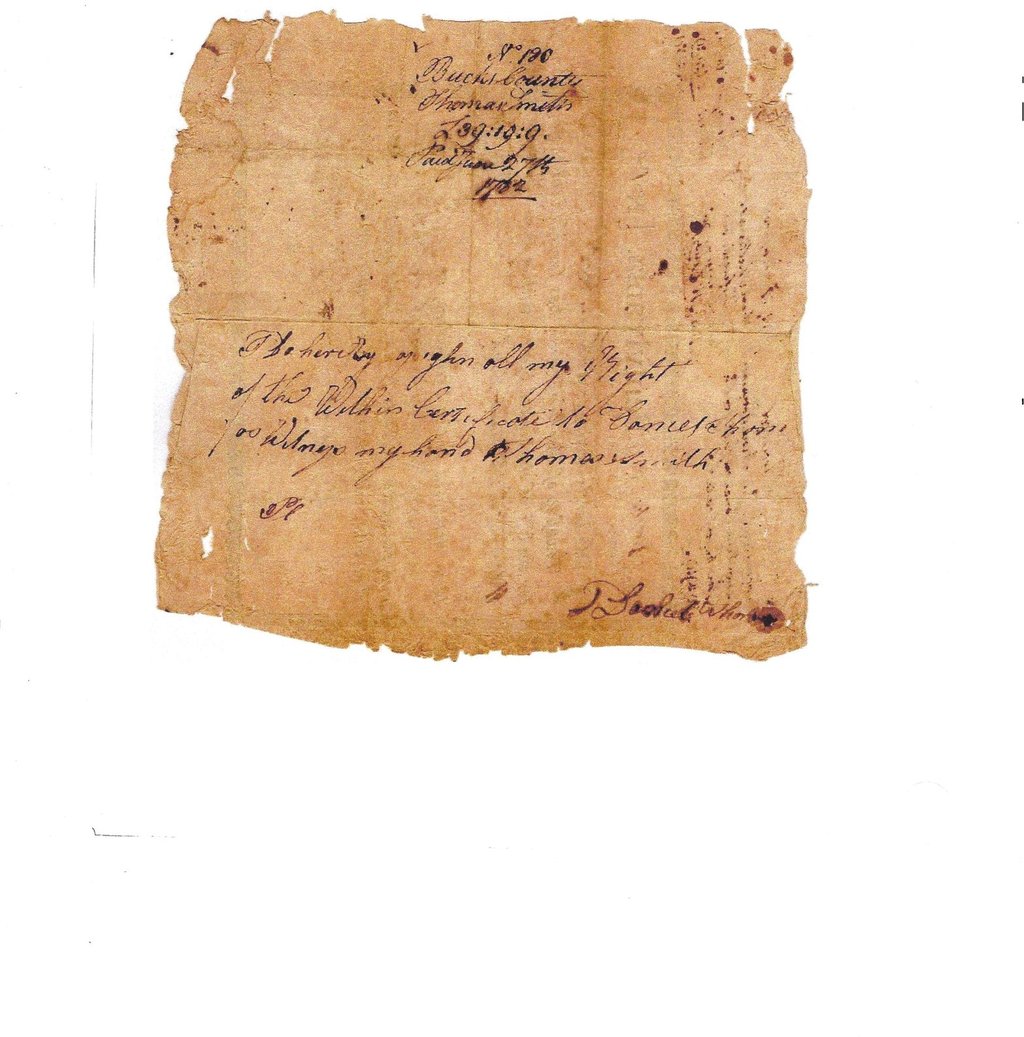 No 180
Bucks County
Thomas Smith
£39:19:9.
Paid June 27th
1782
I Do hereby asighn all my Right
of the Within Certificate to
as Witness my hand Thomas Smith